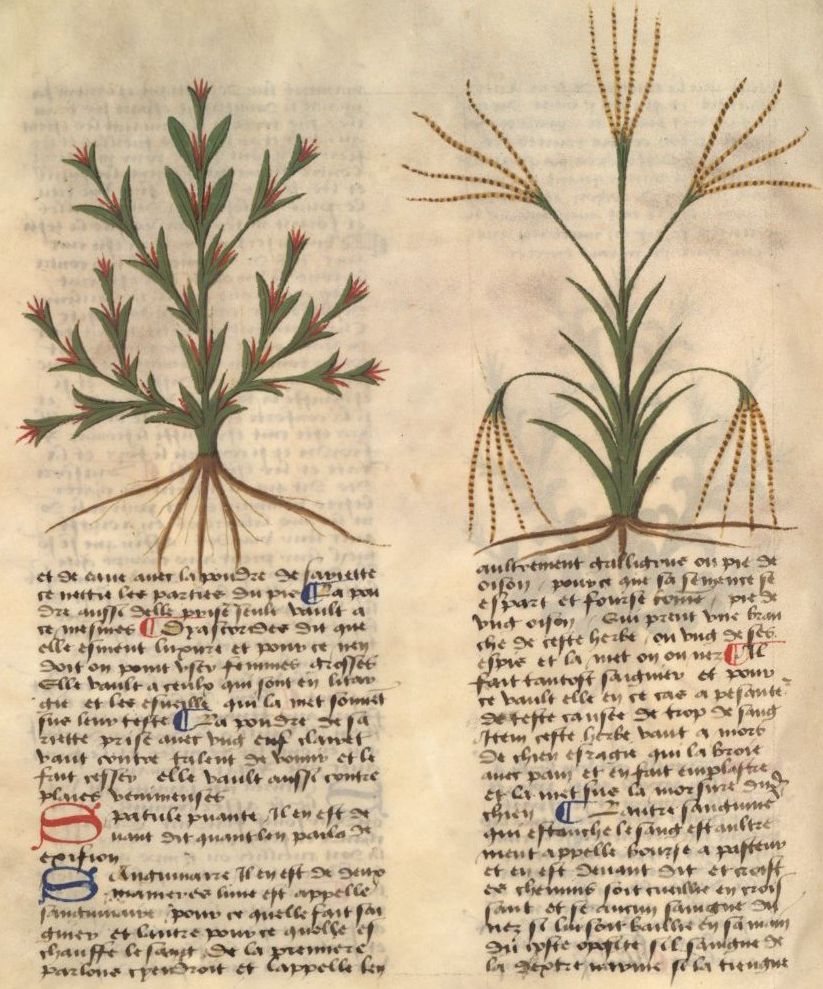 et de eaue avec la poudre de sariette
ce nettie les parties du pie La pou
dre aussi delle prise seule vault a
ce mesmes Dyascordes dit que
elle esment luxure et pour ce nen
doit on point user femmes grosses
Elle vault a ceulx qui sont en litar
gie et les esueille qui la met souuet
sus leur teste La poudre de sa
riette prise avec ung euf clairet
vault contre talent de vomir et le
fait cesser elle vault aussi contre
plaies venimeuses
Spatule puante Il en est de
uant dit quant len parla de
exifion
Sanguinaire Il en est de deux
manieres lune est appelle
sanguinaire pour ce quelle fait sai
gnier et lautre pour ce quelle es
chauffe le sang De la premiere
parlons cyendroit et lappelle len
aultrement galligrus ou pie de
oison pour ce que sa semence se
espart et fourse come pie de
ung oison Qui prent une bran
che de ceste herbe ou ung de ses
espis et la met on ou nez Il
fait tantost saignier et pour
ce vault elle en ce cas a pesante
de teste causee de trop de sang
Item ceste herbe vaut a mors
de chien esragie qui la broie
avec pain et en fait emplastre
et la met sus la morsure du
chien Lautre sanguine
qui estanche le sang est aultre
ment appelle bourse a pasteur
et en est devant dit et croist
es chemins soit cueillie en crois
sant et se aucun saingne du
nez si lui soit baillie en sa main
du coste oposite sil saingne de
la dextre narine si la tiengne